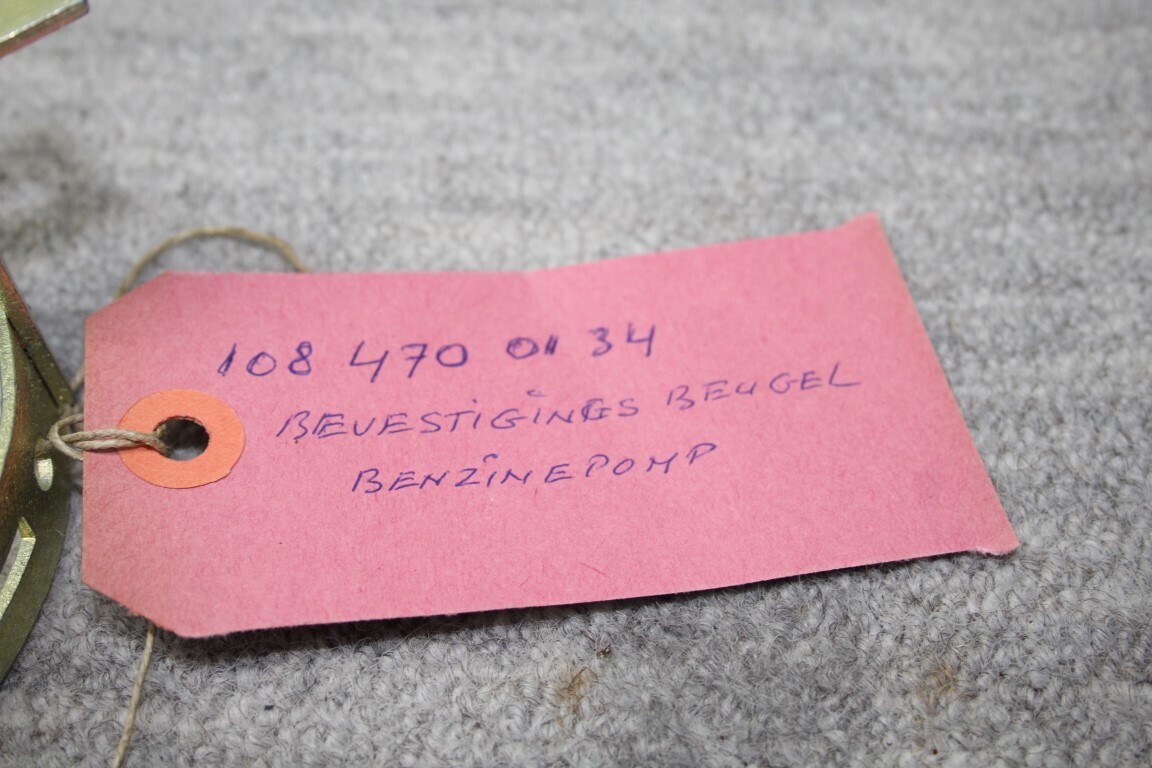 108 470 01 34
BEVESTIGINGS BEUGEL
BENZINEPOMP